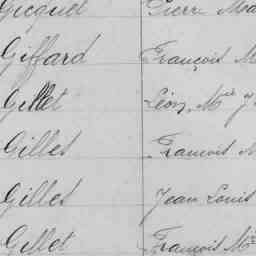 Gicquel Pierre Ma
Giffard François M
Gillet Léon, Mie J
Gilles Francois M
Gilles Jean Louis
Gillet François Mie